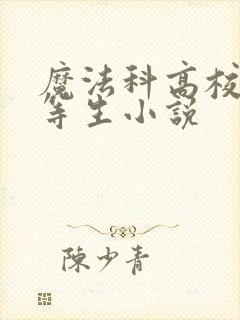 魔法科高校
等生小説
陳少青